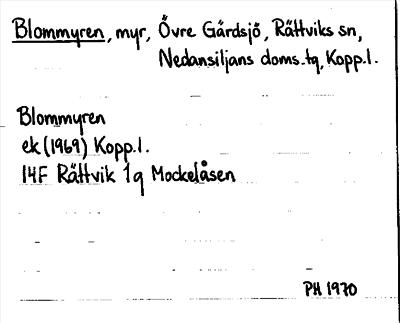 Blommyren, myr, Övre Gärdsjö, Rättviks sn,
Nedansiljans doms.tq, Kopp.l.
Blommyren
ek (1969) Kopp.l.
14F Rättvik 1q Mockelåsen
PH 1970